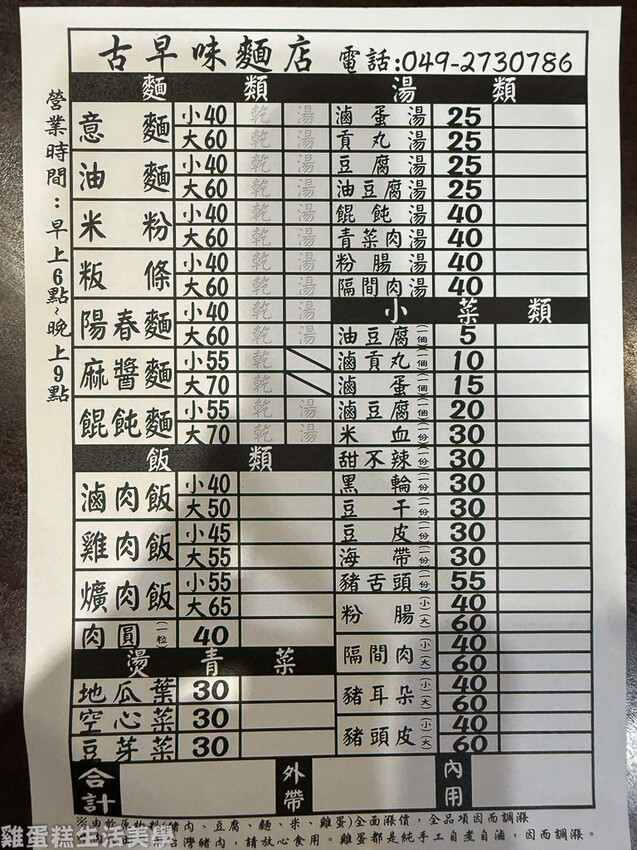 古早味麵店 電話:049-2730786
營業時間：早上6點~晚上9點
麵類
意麵 小40 乾 湯
大60 乾 湯
油麵 小40 乾 湯
大60 乾 湯
米粉 小40 乾 湯
大60 乾 湯
粄條 小40 乾 湯
大60 乾 湯
陽春麵 小40 乾 湯
大60 乾 湯
麻醬麵 小55 乾
大70 乾
餛飩麵 小55 乾 湯
大70 乾 湯
飯類
滷肉飯 小40
大50
雞肉飯 小45
大55
爌肉飯 小55
大65
肉圓(一粒) 40
燙青菜
地瓜葉 30
空心菜 30
豆芽菜 30
湯類
滷蛋湯 25
貢丸湯 25
豆腐湯 25
油豆腐湯 25
餛飩湯 40
青菜肉湯 40
粉腸湯 40
隔間肉湯 40
小菜類
油豆腐(一個) 5
滷貢丸(一個) 10
滷蛋(一個) 15
滷豆腐(一個) 20
米血(一份) 30
甜不辣(一份) 30
黑輪(一份) 30
豆干(一份) 30
豆皮(一份) 30
海帶(一份) 30
豬舌頭(一份) 55
粉腸 (小) 40
(大) 60
隔間肉 (小) 40
(大) 60
豬耳朵 (小) 40
(大) 60
豬頭皮 (小) 40
(大) 60
合計 外帶 內用
※由於原物料(豬肉、豆腐、麵、米、雞蛋)全面漲價，全品項因而調漲
台灣豬肉，請放心食用。雞蛋都是純手工自煮自滷，因而調漲。
雞蛋糕生活美學